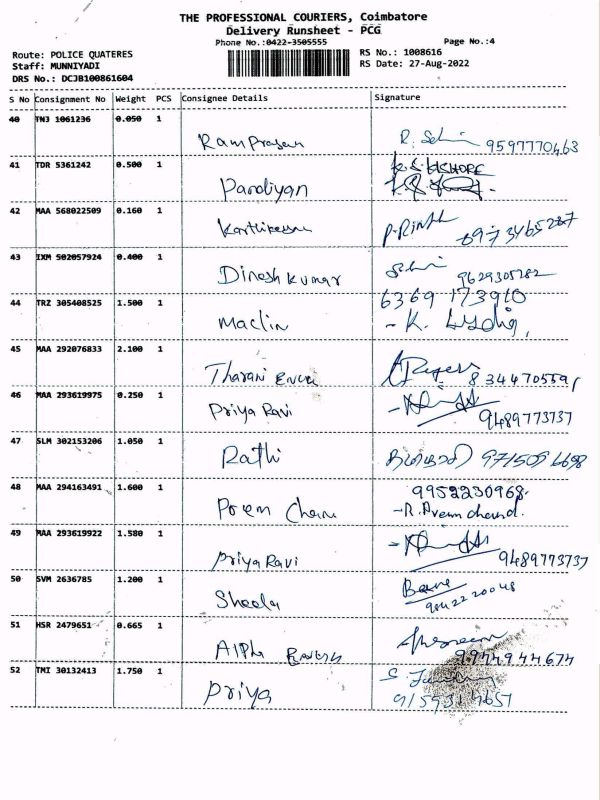 THE PROFESSIONAL COURIERS, Coimbatore
Delivery Runsheet - PCG
Phone No.:0422-3505555
Page No.:4
Route: POLICE QUATERES
Staff: MUNNIYADI
DRS No.: DCJB100861604
RS No.: 1008616
RS Date: 27-Aug-2022
S No Consignment No Weight PCS Consignee Details Signature
40 TNJ 1061236 0.050 1
Ram prasan 9597770463
41 TDR 5361242 0.500 1
Pandiyan K.S. KISHORE
42 MAA 568022509 0.160 1
43 IXM 502057924 0.400 1
Dinesh kumar 9629305282
44 TRZ 305408525 1.500 1
6369 173910
Maclin - K. Lydia
45 MAA 292076833 2.100 1
Tharani 8344705591
46 MAA 293619975 0.250 1
Priya Ravi 9489773737
47 SLM 302153206 1.050 1
Rathi
48 MAA 294163491 1.600 1
9952230968.
Prem Chan - R. Prem chand.
49 MAA 293619922 1.580 1
Priya Ravi 9489773737
50 SVM 2636785 1.200 1
Sheela
51 HSR 2479651 0.665 1
Alpha 9944944674
52 TMI 30132413 1.750 1
Priya